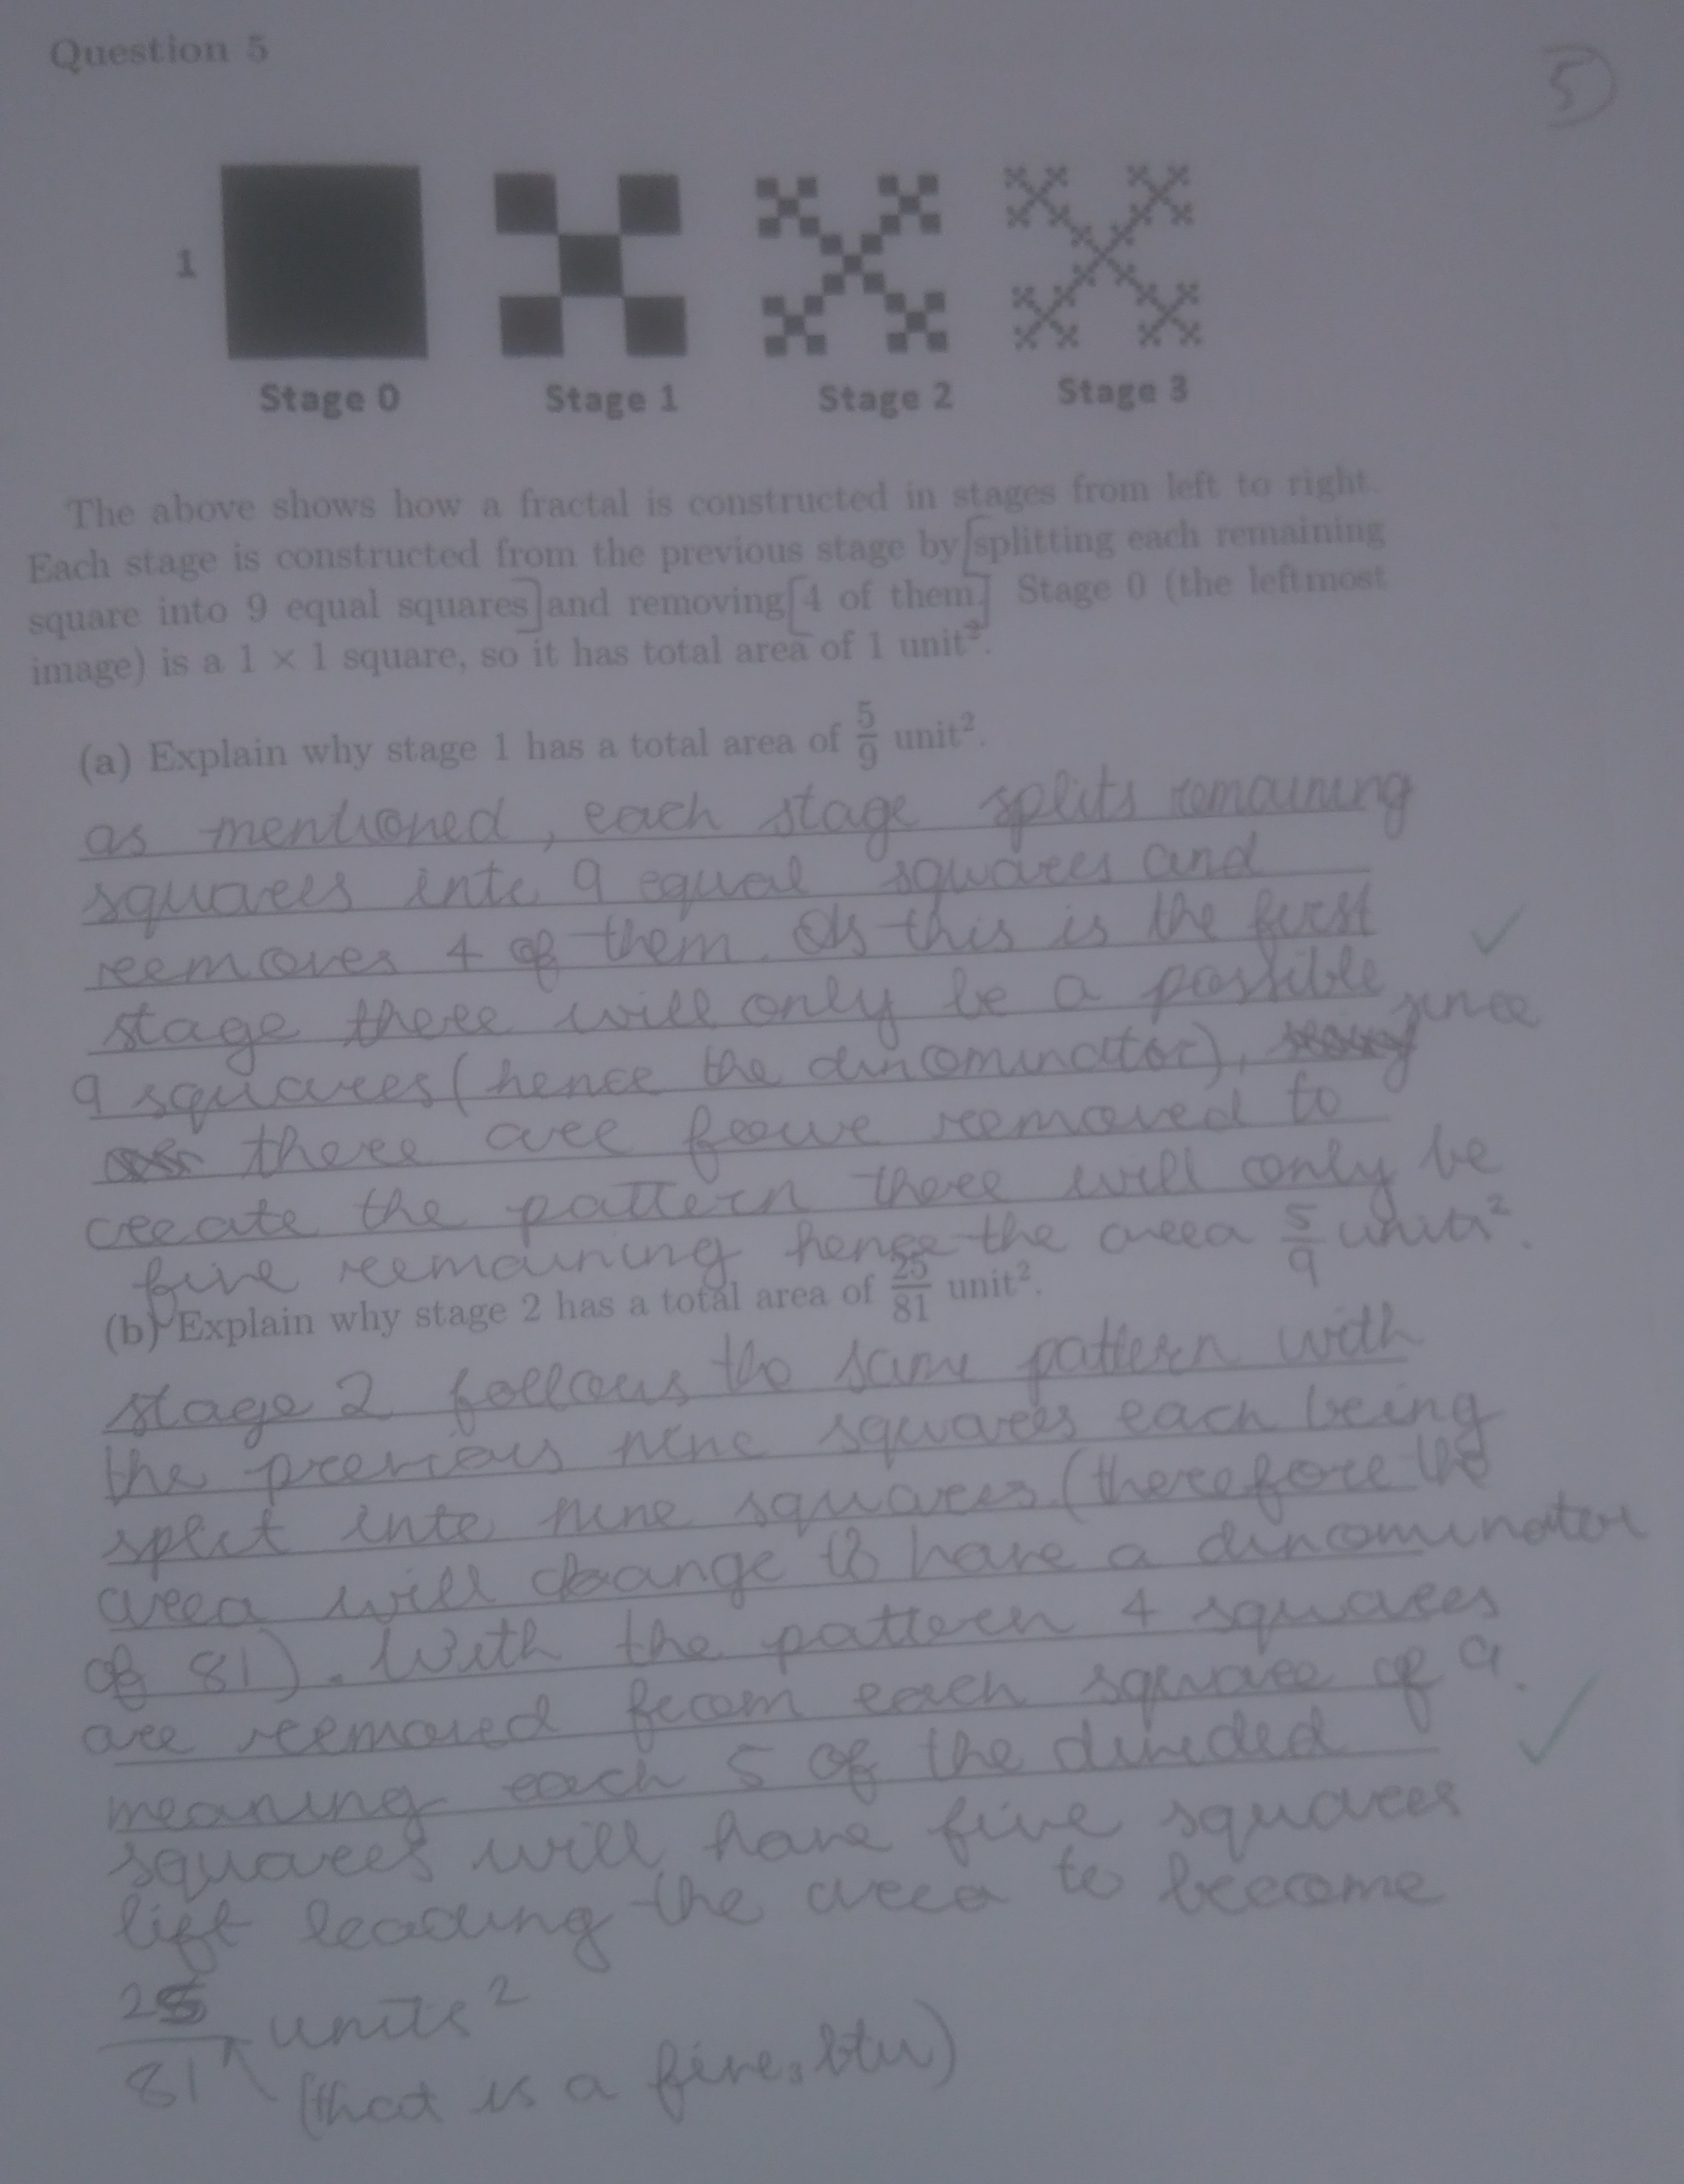 Question 5
5
1
Stage 0 Stage 1 Stage 2 Stage 3
The above shows how a fractal is constructed in stages from left to right.
Each stage is constructed from the previous stage by [splitting each remaining
square into 9 equal squares] and removing [4 of them.] Stage 0 (the leftmost
image) is a 1 × 1 square, so it has total area of 1 unit².
(a) Explain why stage 1 has a total area of 5/9 unit².
as mentioned, each stage splits remaining
squares into 9 equal squares and
removes 4 of them. As this is the first
stage there will only be a possible
9 squares (hence the dinominator), since
there are four removed to
create the pattern there will only be
five remaining hence the area 5/9 units².
(b) Explain why stage 2 has a total area of 25/81 unit².
stage 2 follows the same pattern with
the previous nine squares each being
split into nine squares (therefore the
area will change to have a dinominator
of 81). With the pattern 4 squares
are removed from each square of 9.
meaning each 5 of the divided
squares will have five squares
lift leading the area to become
25/81 units²
(that is a five, btw)